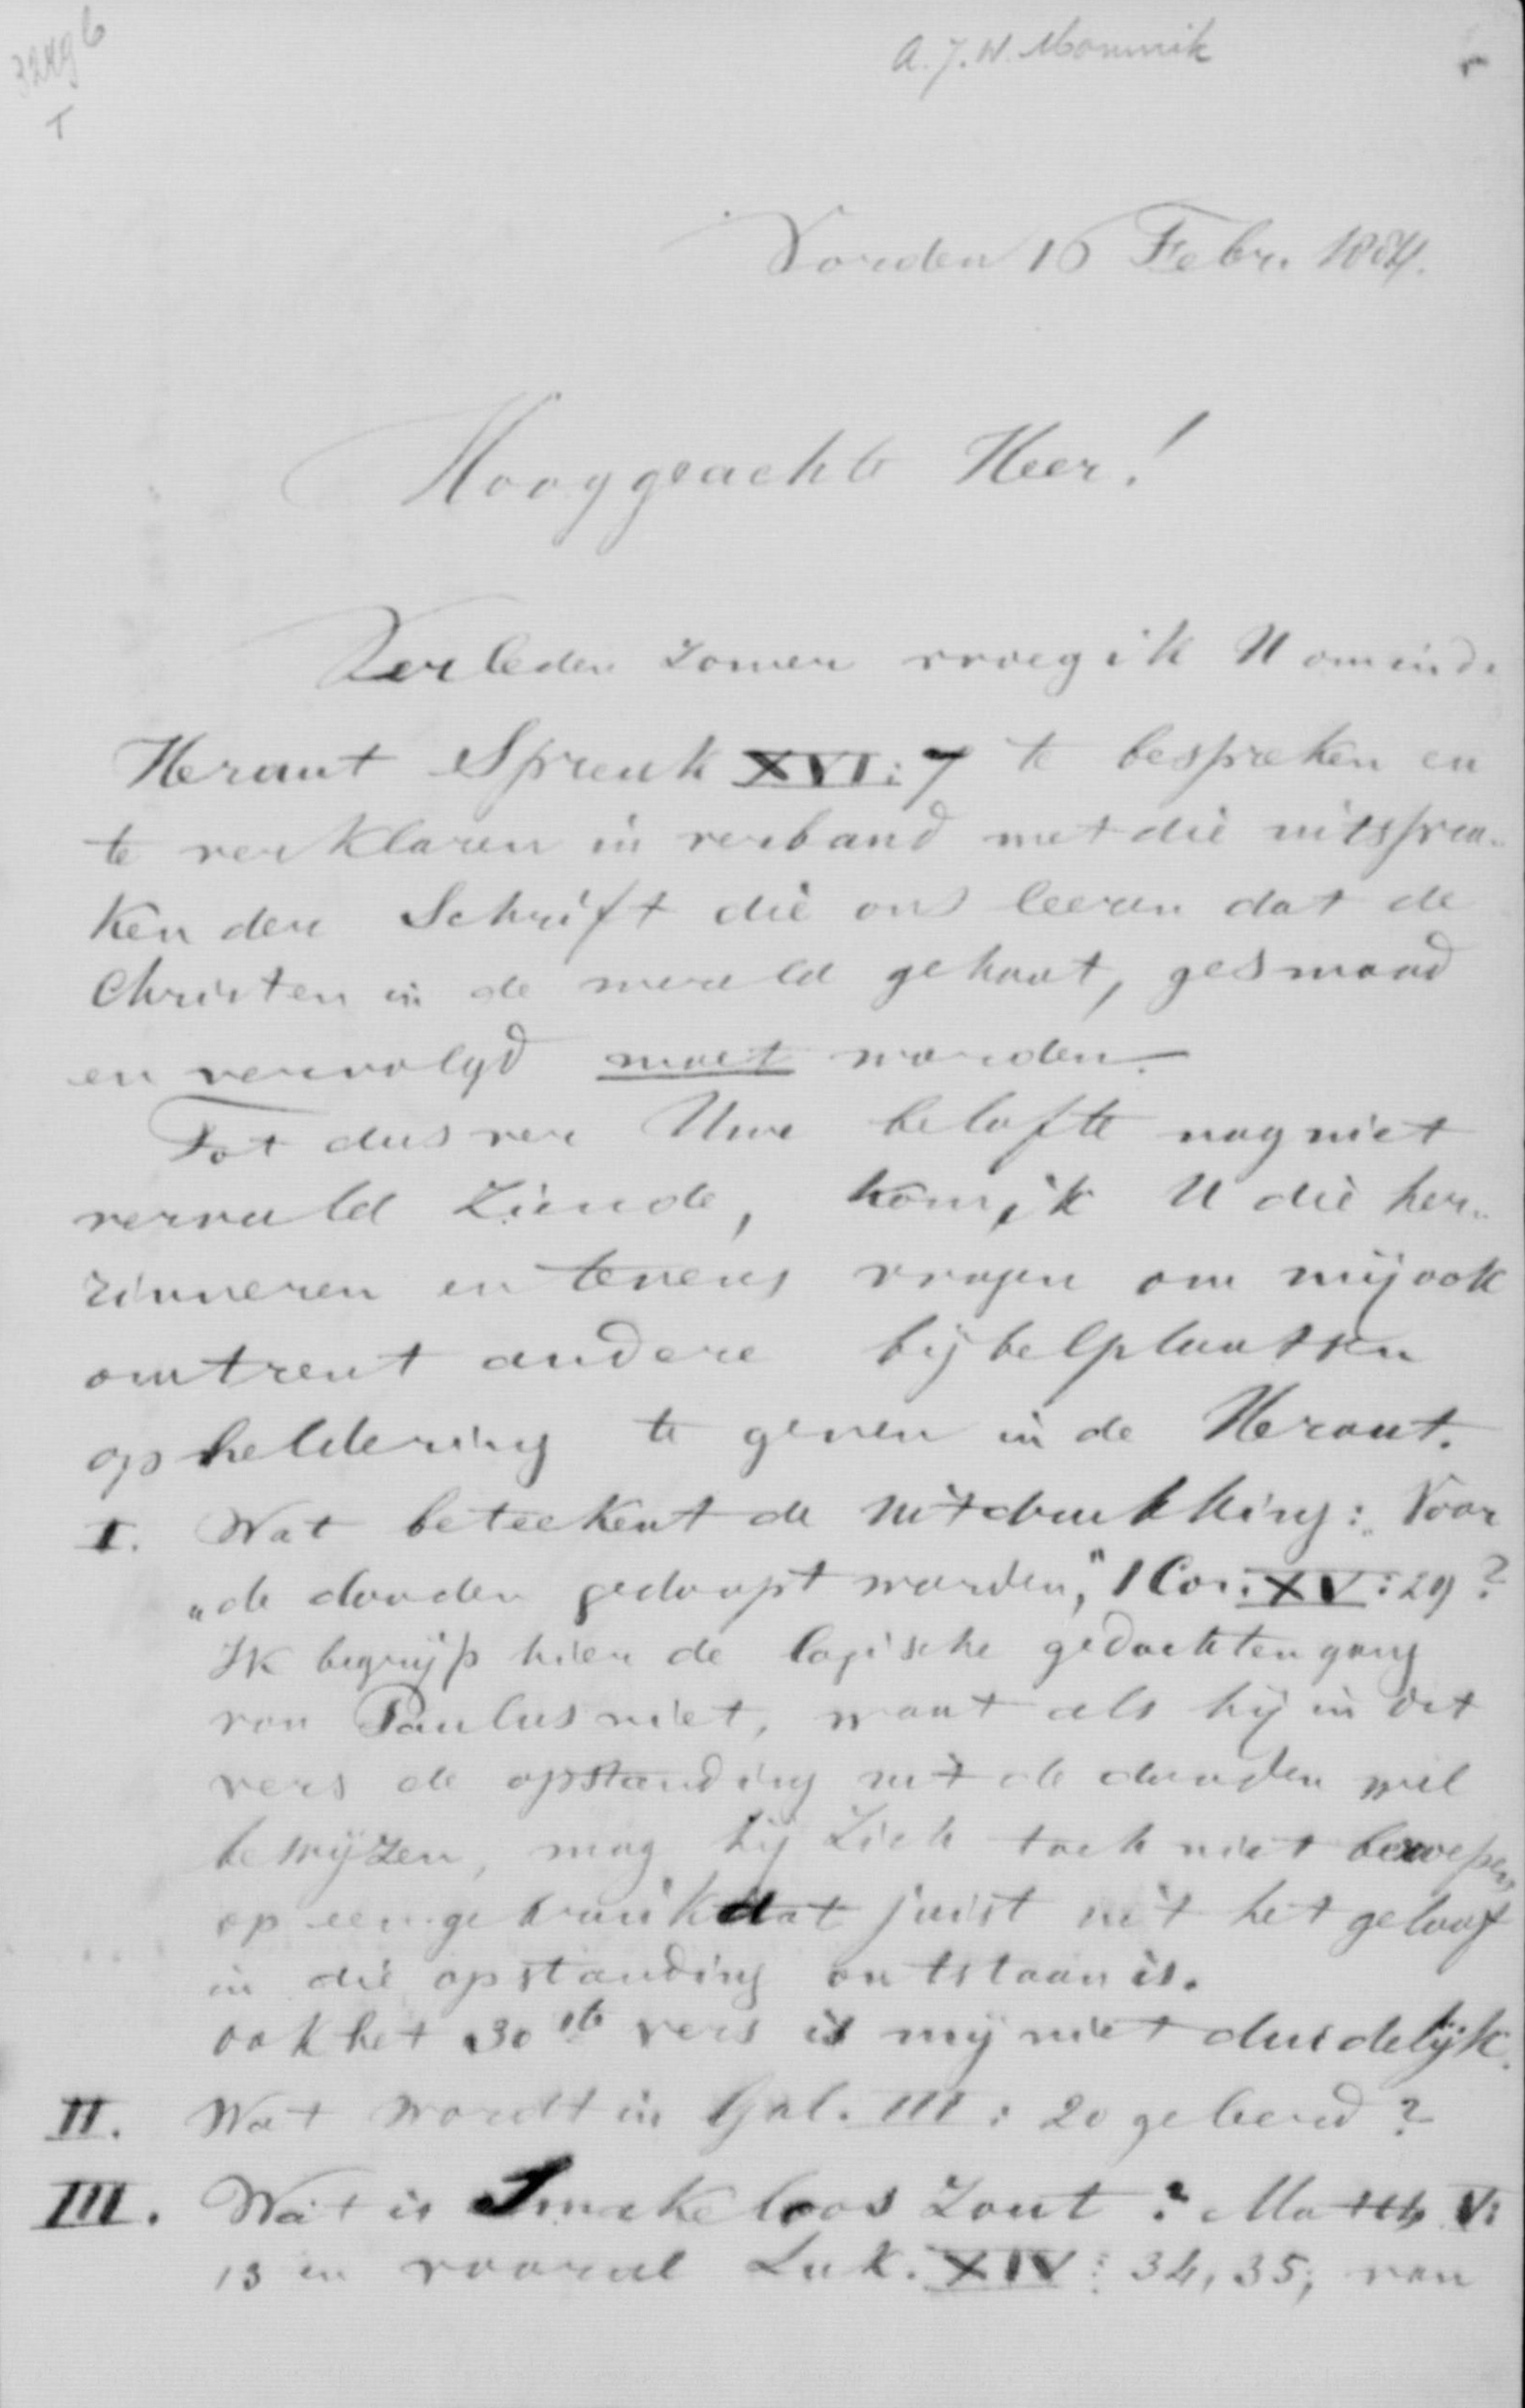 3249 6
A. J. W. Monnink
T
Vorden 16 Febr. 1884.
Hooggeachte Heer!
Verleden zomer vroeg ik U om in de
Heraut Spreuk XVI: 7 te bespreken en
te verklaren in verband met die uitspra-
ken der Schrift die ons leeren dat de
Christen in de wereld gehaat, gesmaad
en vervolgd moet worden.
Tot dusver Uwe belofte nog niet
vervuld ziende, kom ik U die her-
zinneren en tevens vragen om mij ook
omtrent andere bijbelplaatsen
opheldering te geven in de Heraut.
I. Wat beteekent de uitdrukking: "Voor
"de dooden gedoopt worden," 1 Cor. XV: 29?
Ik begrijp hier de logische gedachtengang
van Paulus niet, want als hij in dit
vers de opstanding uit de dooden wil
bewijzen, mag hij zich toch niet beroepen
op een gebruik dat juist uit het geloof
in die opstanding ontstaan is.
ook het 30ste vers is mij niet duidelijk.
II. Wat wordt in Gal. III: 20 geleerd?
III. Wat is Smakeloos zout? Matth V:
13 en vooral Luk. XIV: 34, 35; van